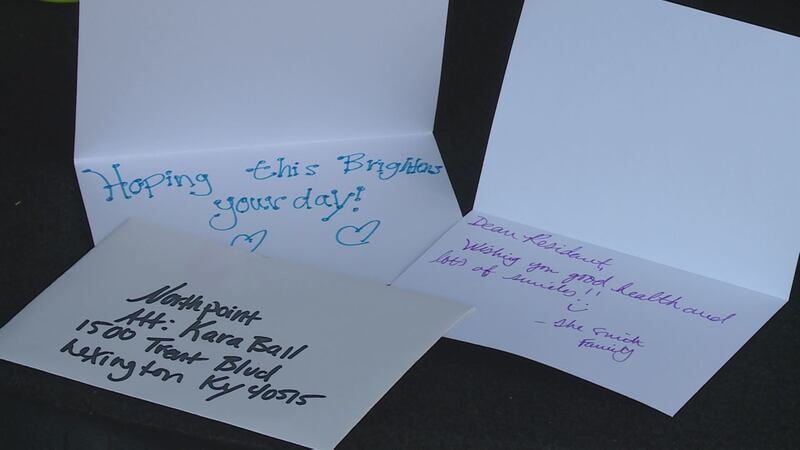 Hoping this Brightens
your day!
Dear Resident,
Wishing you good health and
lots of smiles!!
Family
Northpoint
Att: Kara Ball
1500 Trent Blvd
Lexington Ky 40515